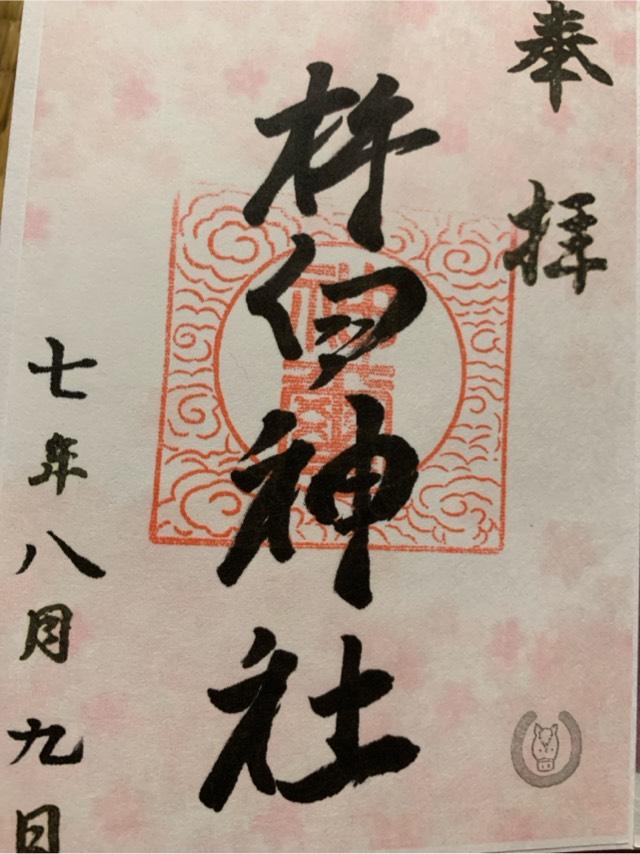 奉拝
杵臼神社
七年八月九日